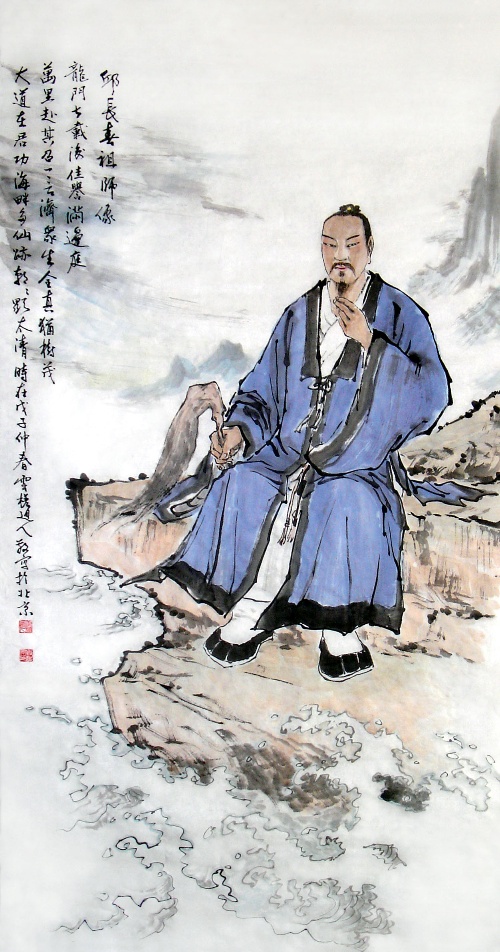 邱長春祖師像
龍門七載後佳譽滿邊庭
萬里赴其召一言濟眾生全真猶樹茂
大道在君功海畔多仙跡朝〻顯太清時在戊子仲春雲道人敬寫於北京